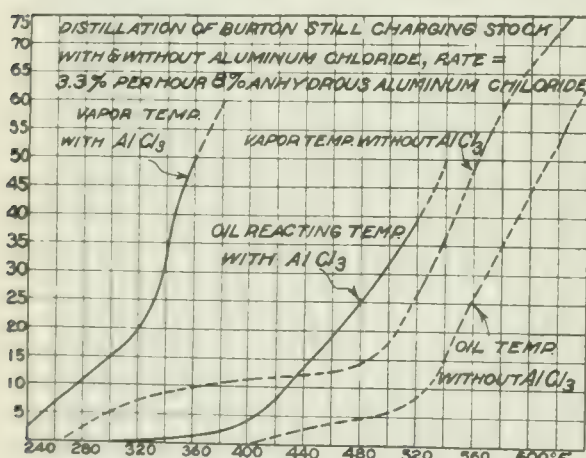 DISTILLATION OF BURTON STILL CHARGING STOCK
WITH & WITHOUT ALUMINUM CHLORIDE, RATE =
3.3% PER HOUR 8% ANHYDROUS ALUMINUM CHLORIDE
VAPOR TEMP.
WITH AlCl3
VAPOR TEMP. WITHOUT AlCl3
OIL REACTING TEMP.
WITH AlCl3
OIL TEMP.
WITHOUT AlCl3
75
70
65
60
55
50
45
40
35
30
25
20
15
10
5
240 280 320 360 400 440 480 520 560 600°F.